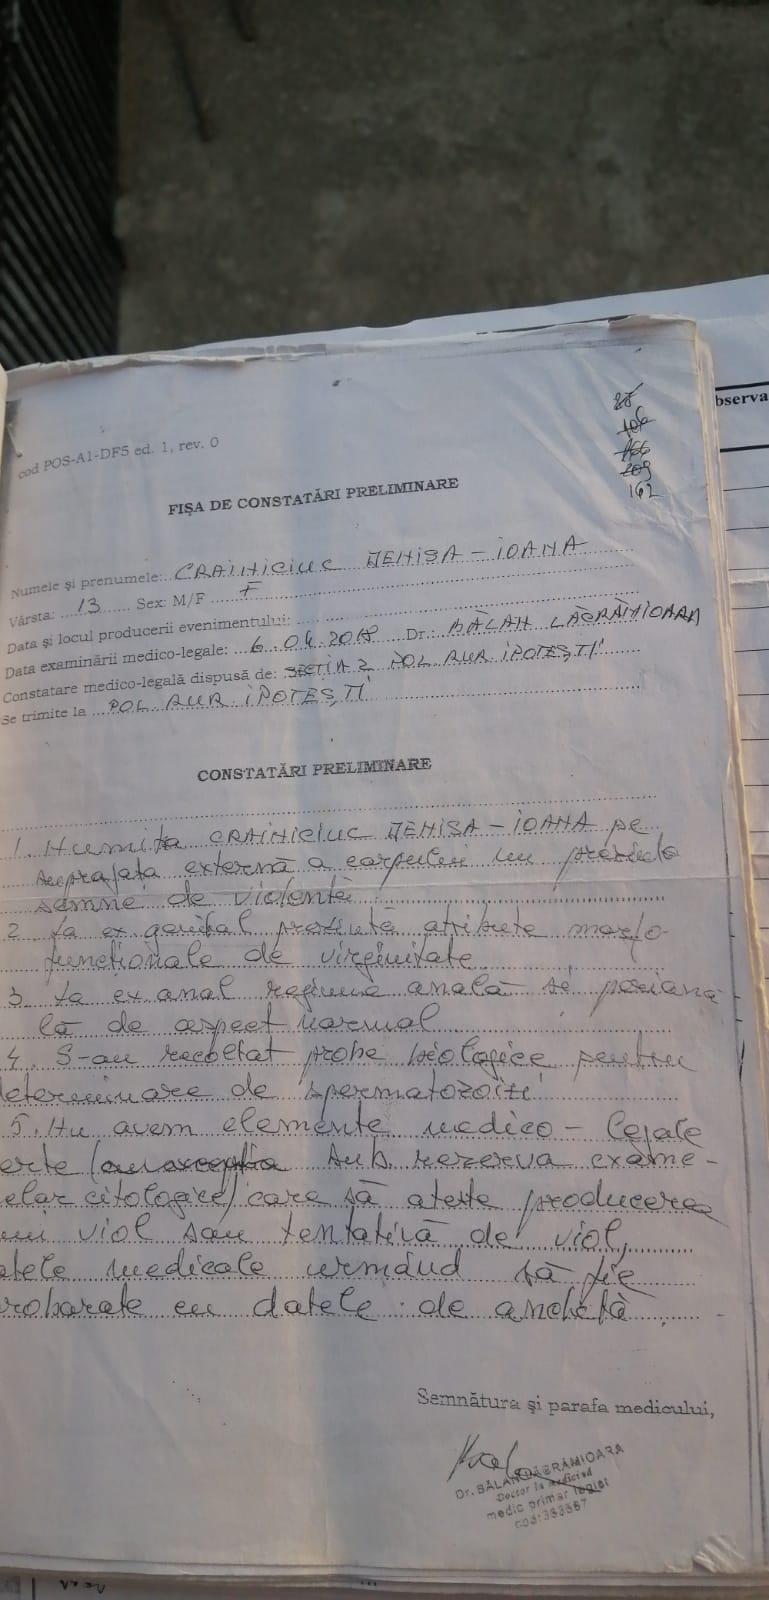 bserva
27
106
166
209
162
cod POS-A1-DF5 ed. 1, rev. 0
FIȘA DE CONSTATĂRI PRELIMINARE
Numele și prenumele: CRAINICIUC DENISA - IOANA
Vârsta: 13 Sex: M/F F
Data și locul producerii evenimentului:
Data examinării medico-legale: 6.04.2018 Dr.: BĂLAN LĂCRĂMIOARA
Constatare medico-legală dispusă de: SECTIA 2 POL RUR IPOTEȘTI
Se trimite la POL RUR IPOTEȘTI
CONSTATĂRI PRELIMINARE
1. Numita CRAINICIUC DENISA - IOANA pe
suprafața externă a corpului nu prezintă
semne de violență
2. La ex genital prezintă atribute morfo-
funcționale de virginitate
3. La ex anal regiunea anală și periana-
lă de aspect normal
4. S-au recoltat probe biologice pentru
determinare de spermatozoizi
5. Nu avem elemente medico - legale
certe ( sub rezerva exame-
elor citologice) care să ateste producerea
unui viol sau tentativă de viol,
datele medicale urmând să fie
coroborate cu datele de anchetă
Semnătura și parafa medicului,
Dr. BĂLAN LĂCRĂMIOARA
Doctor în medicină
medic primar legist
cod:383567